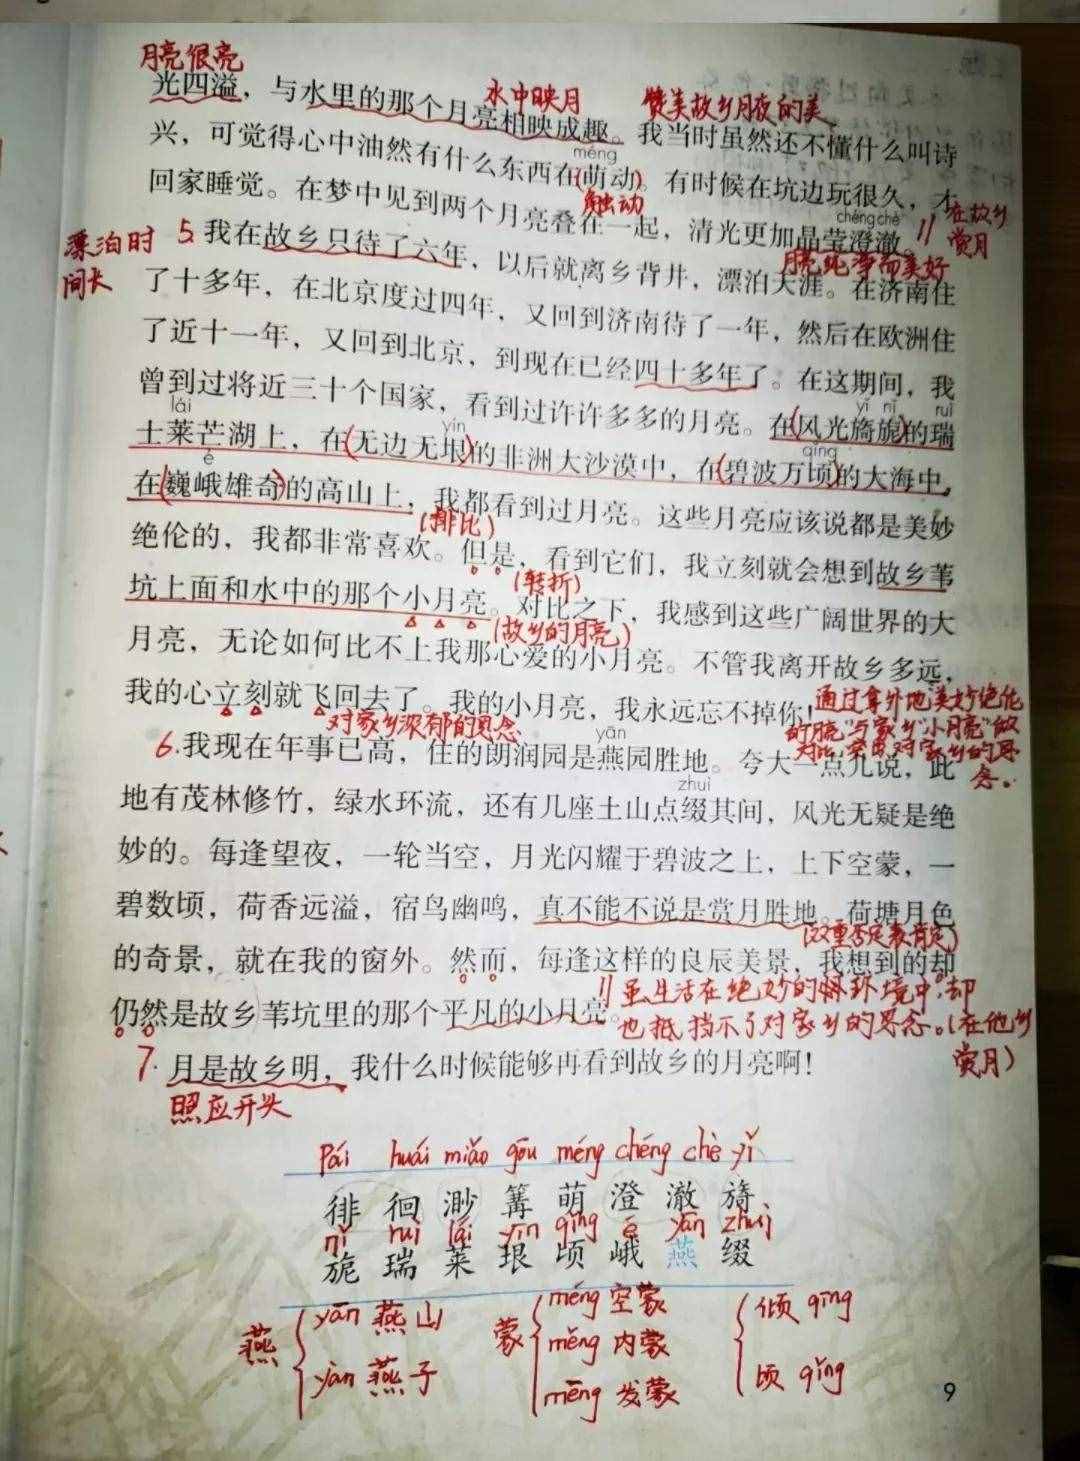 月亮很亮
光四溢，与水里的那个月亮相映成趣。我当时虽然还不懂什么叫诗
水中映月
赞美故乡月夜的美
兴，可觉得心中油然有什么东西在(萌动)。有时候在坑边玩很久，才
méng
触动
回家睡觉。在梦中见到两个月亮叠在一起，清光更加晶莹澄澈。//
chéng chè
在故乡
赏月
月亮纯净而美好
漂泊时
间长
5.我在故乡只待了六年，以后就离乡背井，漂泊天涯。在济南住
了十多年，在北京度过四年，又回到济南待了一年，然后在欧洲住
了近十一年，又回到北京，到现在已经四十多年了。在这期间，我
曾到过将近三十个国家，看到过许许多多的月亮。在(风光旖旎)的瑞
lái yín yǐ nǐ ruì
士莱芒湖上，在(无边无垠)的非洲大沙漠中，在(碧波万顷)的大海中，
é qǐng
在(巍峨雄奇)的高山上，我都看到过月亮。这些月亮应该说都是美妙
(排比)
绝伦的，我都非常喜欢。但是，看到它们，我立刻就会想到故乡苇
(转折)
坑上面和水中的那个小月亮。对比之下，我感到这些广阔世界的大
(故乡的月亮)
月亮，无论如何比不上我那心爱的小月亮。不管我离开故乡多远，
我的心立刻就飞回去了。我的小月亮，我永远忘不掉你！
对家乡浓郁的思念
通过拿外地美妙绝伦
的"月亮"与家乡"小月亮"做
对比，突出对家乡的思
念。
6.我现在年事已高，住的朗润园是燕园胜地。夸大一点儿说，此
yān
zhuì
地有茂林修竹，绿水环流，还有几座土山点缀其间，风光无疑是绝
妙的。每逢望夜，一轮当空，月光闪耀于碧波之上，上下空蒙，一
碧数顷，荷香远溢，宿鸟幽鸣，真不能不说是赏月胜地。荷塘月色
(双重否定表肯定)
的奇景，就在我的窗外。然而，每逢这样的良辰美景，我想到的却
仍然是故乡苇坑里的那个平凡的小月亮。
//虽生活在绝妙的环境中，却
也抵挡不了对家乡的思念。(在他乡
赏月)
7.月是故乡明，我什么时候能够再看到故乡的月亮啊！
照应开头
pái huái miǎo gōu méng chéng chè yǐ
徘徊渺篝萌澄澈旖
nǐ ruì lái yín qǐng é yān zhuì
旎瑞莱垠顷峨燕缀
燕 yān 燕山
yàn 燕子
蒙 méng 空蒙
měng 内蒙
mēng 发蒙
倾 qīng
顷 qǐng
9